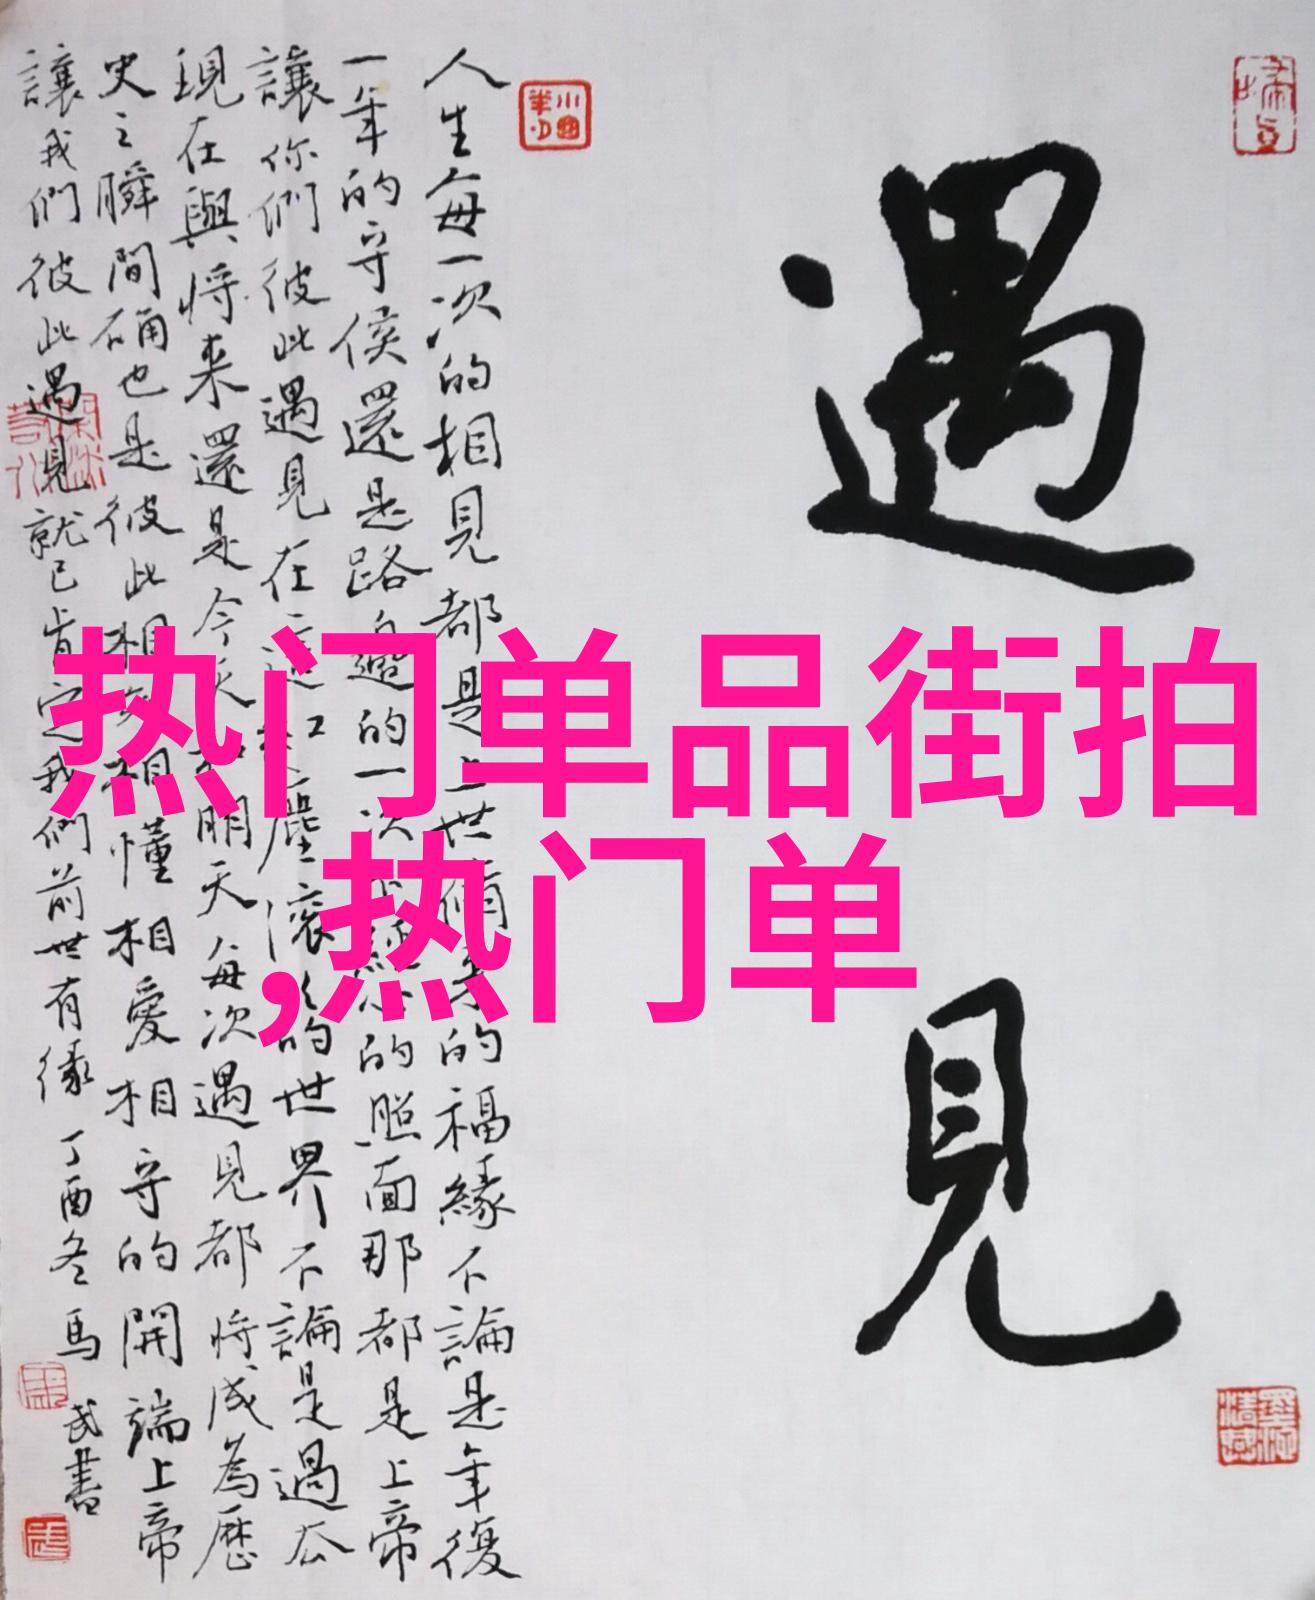 遇見
人生每一次的相見都是上世脩来的福緣不論是年復
一年的守侯還是路邊的一次不經的照面那都是上帝
讓你們彼此遇見在這紅塵滚滚的世界不論是過去
現在與將来還是今天和明天每次遇見都將成為歷
史之瞬間确也是彼此相亲相懂相愛相守的開端上帝
讓我們彼此遇見就已肯定我們前世有缘
丁酉冬馬武書
热门单品街拍
,热门单